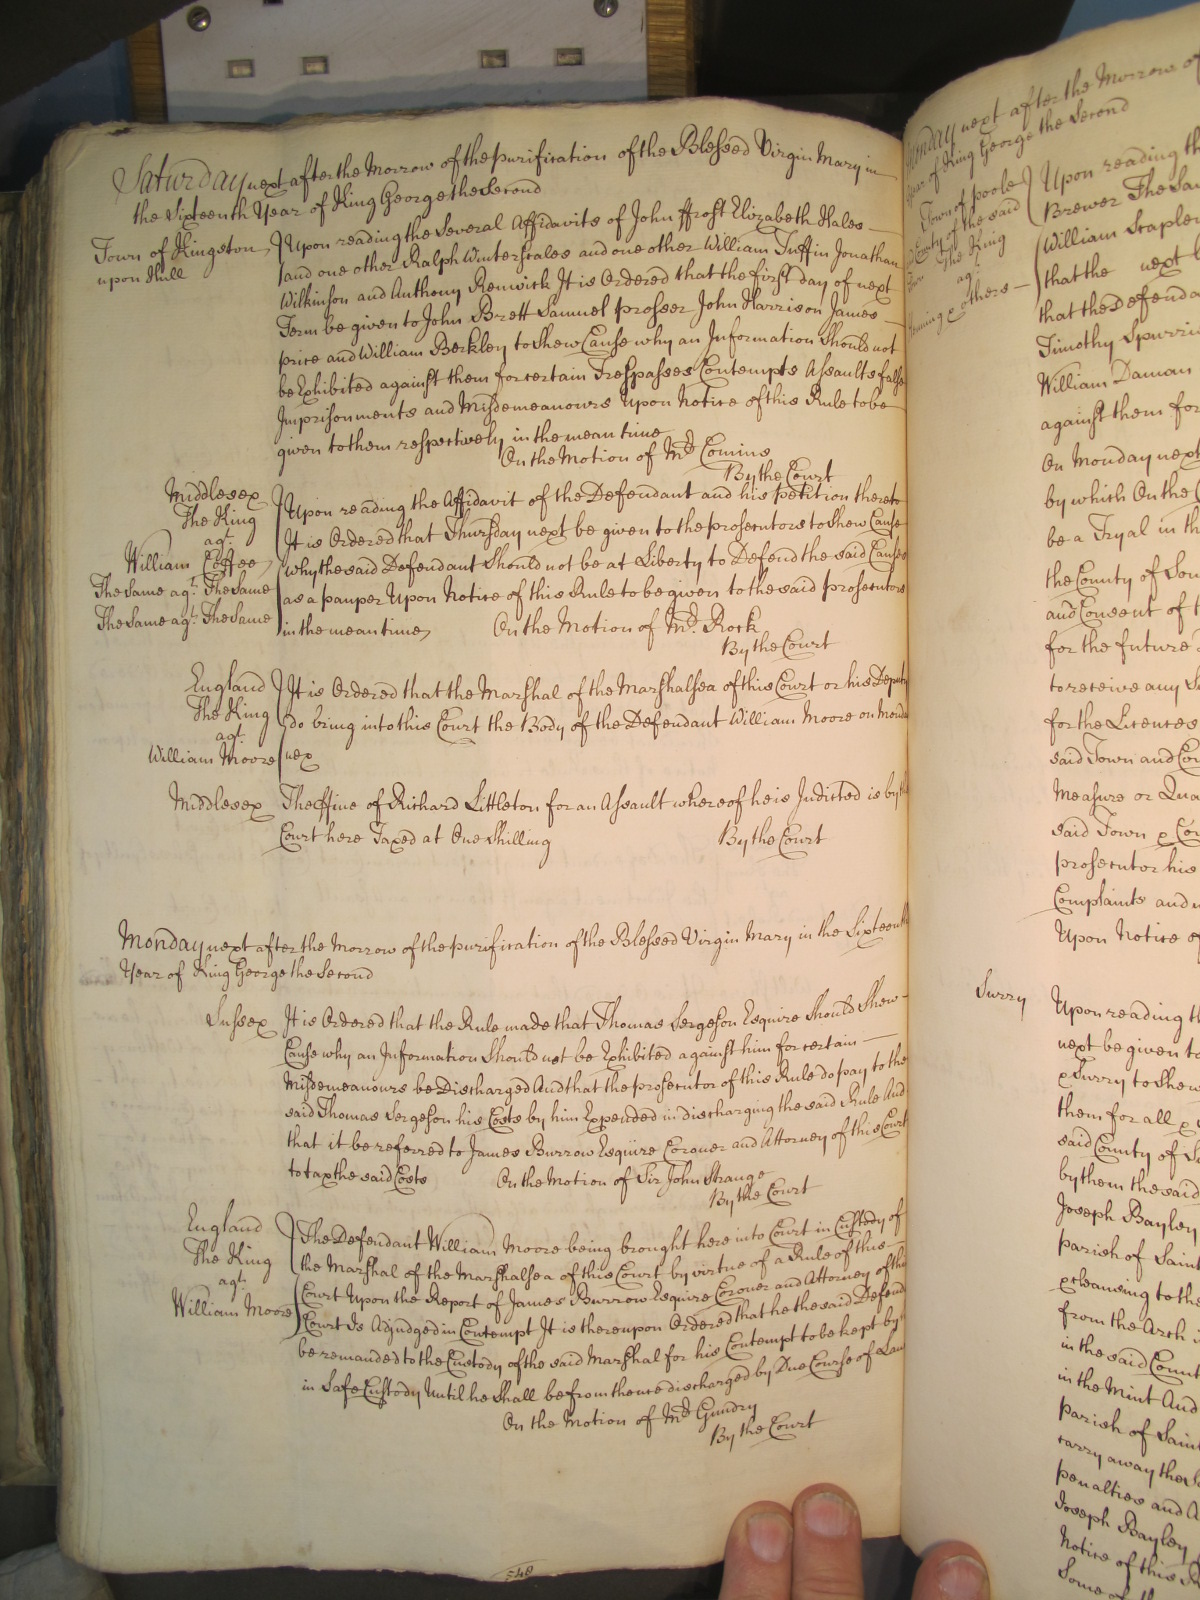 Saturday next after the Morrow of the purification of the Blessed Virgin Mary in
the Sixteenth Year of King George the Second
Town of Kingston
upon Hull
Upon reading the Several Affidavits of John ffrost Elizabeth Hales
and one other Ralph Winterscales and one other William Tuffin Jonathan
Wilkinson and Anthony Renwick It is Ordered that the first day of next
Term be given to John Brett Samuel prosser John Harrison James
price and William Berkley to Shew Cause why an Information Should not
be Exhibited against them for certain Trespasses Contempts Assaults false
Imprisonments and Misdemeanours Upon Notice of this Rule to be
given to them respectively in the mean time
On the Motion of Mr. Comins
By the Court
Middlesex
The King
agt.
William Coffee
The Same agt. The Same
The Same agt. The Same
Upon reading the Affidavit of the Defendant and his petition thereto
It is Ordered that Thursday next be given to the prosecutors to Shew Cause
why the said Defendant Should not be at Liberty to Defend the said Causes
as a pauper Upon Notice of this Rule to be given to the said prosecutors
in the mean time
On the Motion of Mr. Rock
By the Court
England
The King
agt.
William Moore
It is Ordered that the Marshal of the Marshalsea of this Court or his Deputy
do bring into this Court the Body of the Defendant William Moore on Monda
nex
Middlesex
The ffine of Richard Littleton for an Assault whereof he is Indicted is by th
Court here Taxed at One Shilling
By the Court
Monday next after the Morrow of the purification of the Blessed Virgin Mary in the Sixteenth
Year of King George the Second
Sussex
It is Ordered that the Rule made that Thomas Sergeson Esquire Should Shew
Cause why an Information Should not be Exhibited against him for certain
Misdemeanours be Discharged And that the prosecutor of this Rule do pay to the
said Thomas Sergeson his Costs by him Expended in discharging the said Rule And
that it be referred to James Burrow Esquire Coroner and Attorney of this Court
to tax the said Costs
On the Motion of Sir John Strange
By the Court
England
The King
agt.
William Moore
The Defendant William Moore being brought here into Court in Custody of
the Marshal of the Marshalsea of this Court by virtue of a Rule of this
Court Upon the Report of James Burrow Esquire Coroner and Attorney of this
Court Is Adjudged in Contempt It is thereupon Ordered that he the said Defend
be remanded to the Custody of the said Marshal for his Contempt to be kept by
in Safe Custody Until he Shall be from thence discharged by Due Course of Law
On the Motion of Mr. Gundry
By the Court
Monday next after the Morrow of
Year of King George the Second
Town of poole
County of the said
The King
agt.
others
Upon reading th
Brewer The Sa
William Stapler
that the next
that the Defenda
Timothy Spurri
William Daman
against them for
On Monday next
by which On the
be a Tryal in th
the County of Sou
and Consent of t
for the future
to receive any S
for the Licences
said Town and Cou
Measure or Qua
said Town & Cou
prosecutor his
Complaints and
Upon Notice of
Surry
Upon reading th
next be given to
& Surry to Shew
them for all &
said County of S
by them the said
Joseph Bayley
parish of Saint
& cleansing to the
from the Arch
in the said Count
in the Mint And
parish of Saint
carry away the S
penalties and A
Joseph Bayley
Notice of this R
Some of th